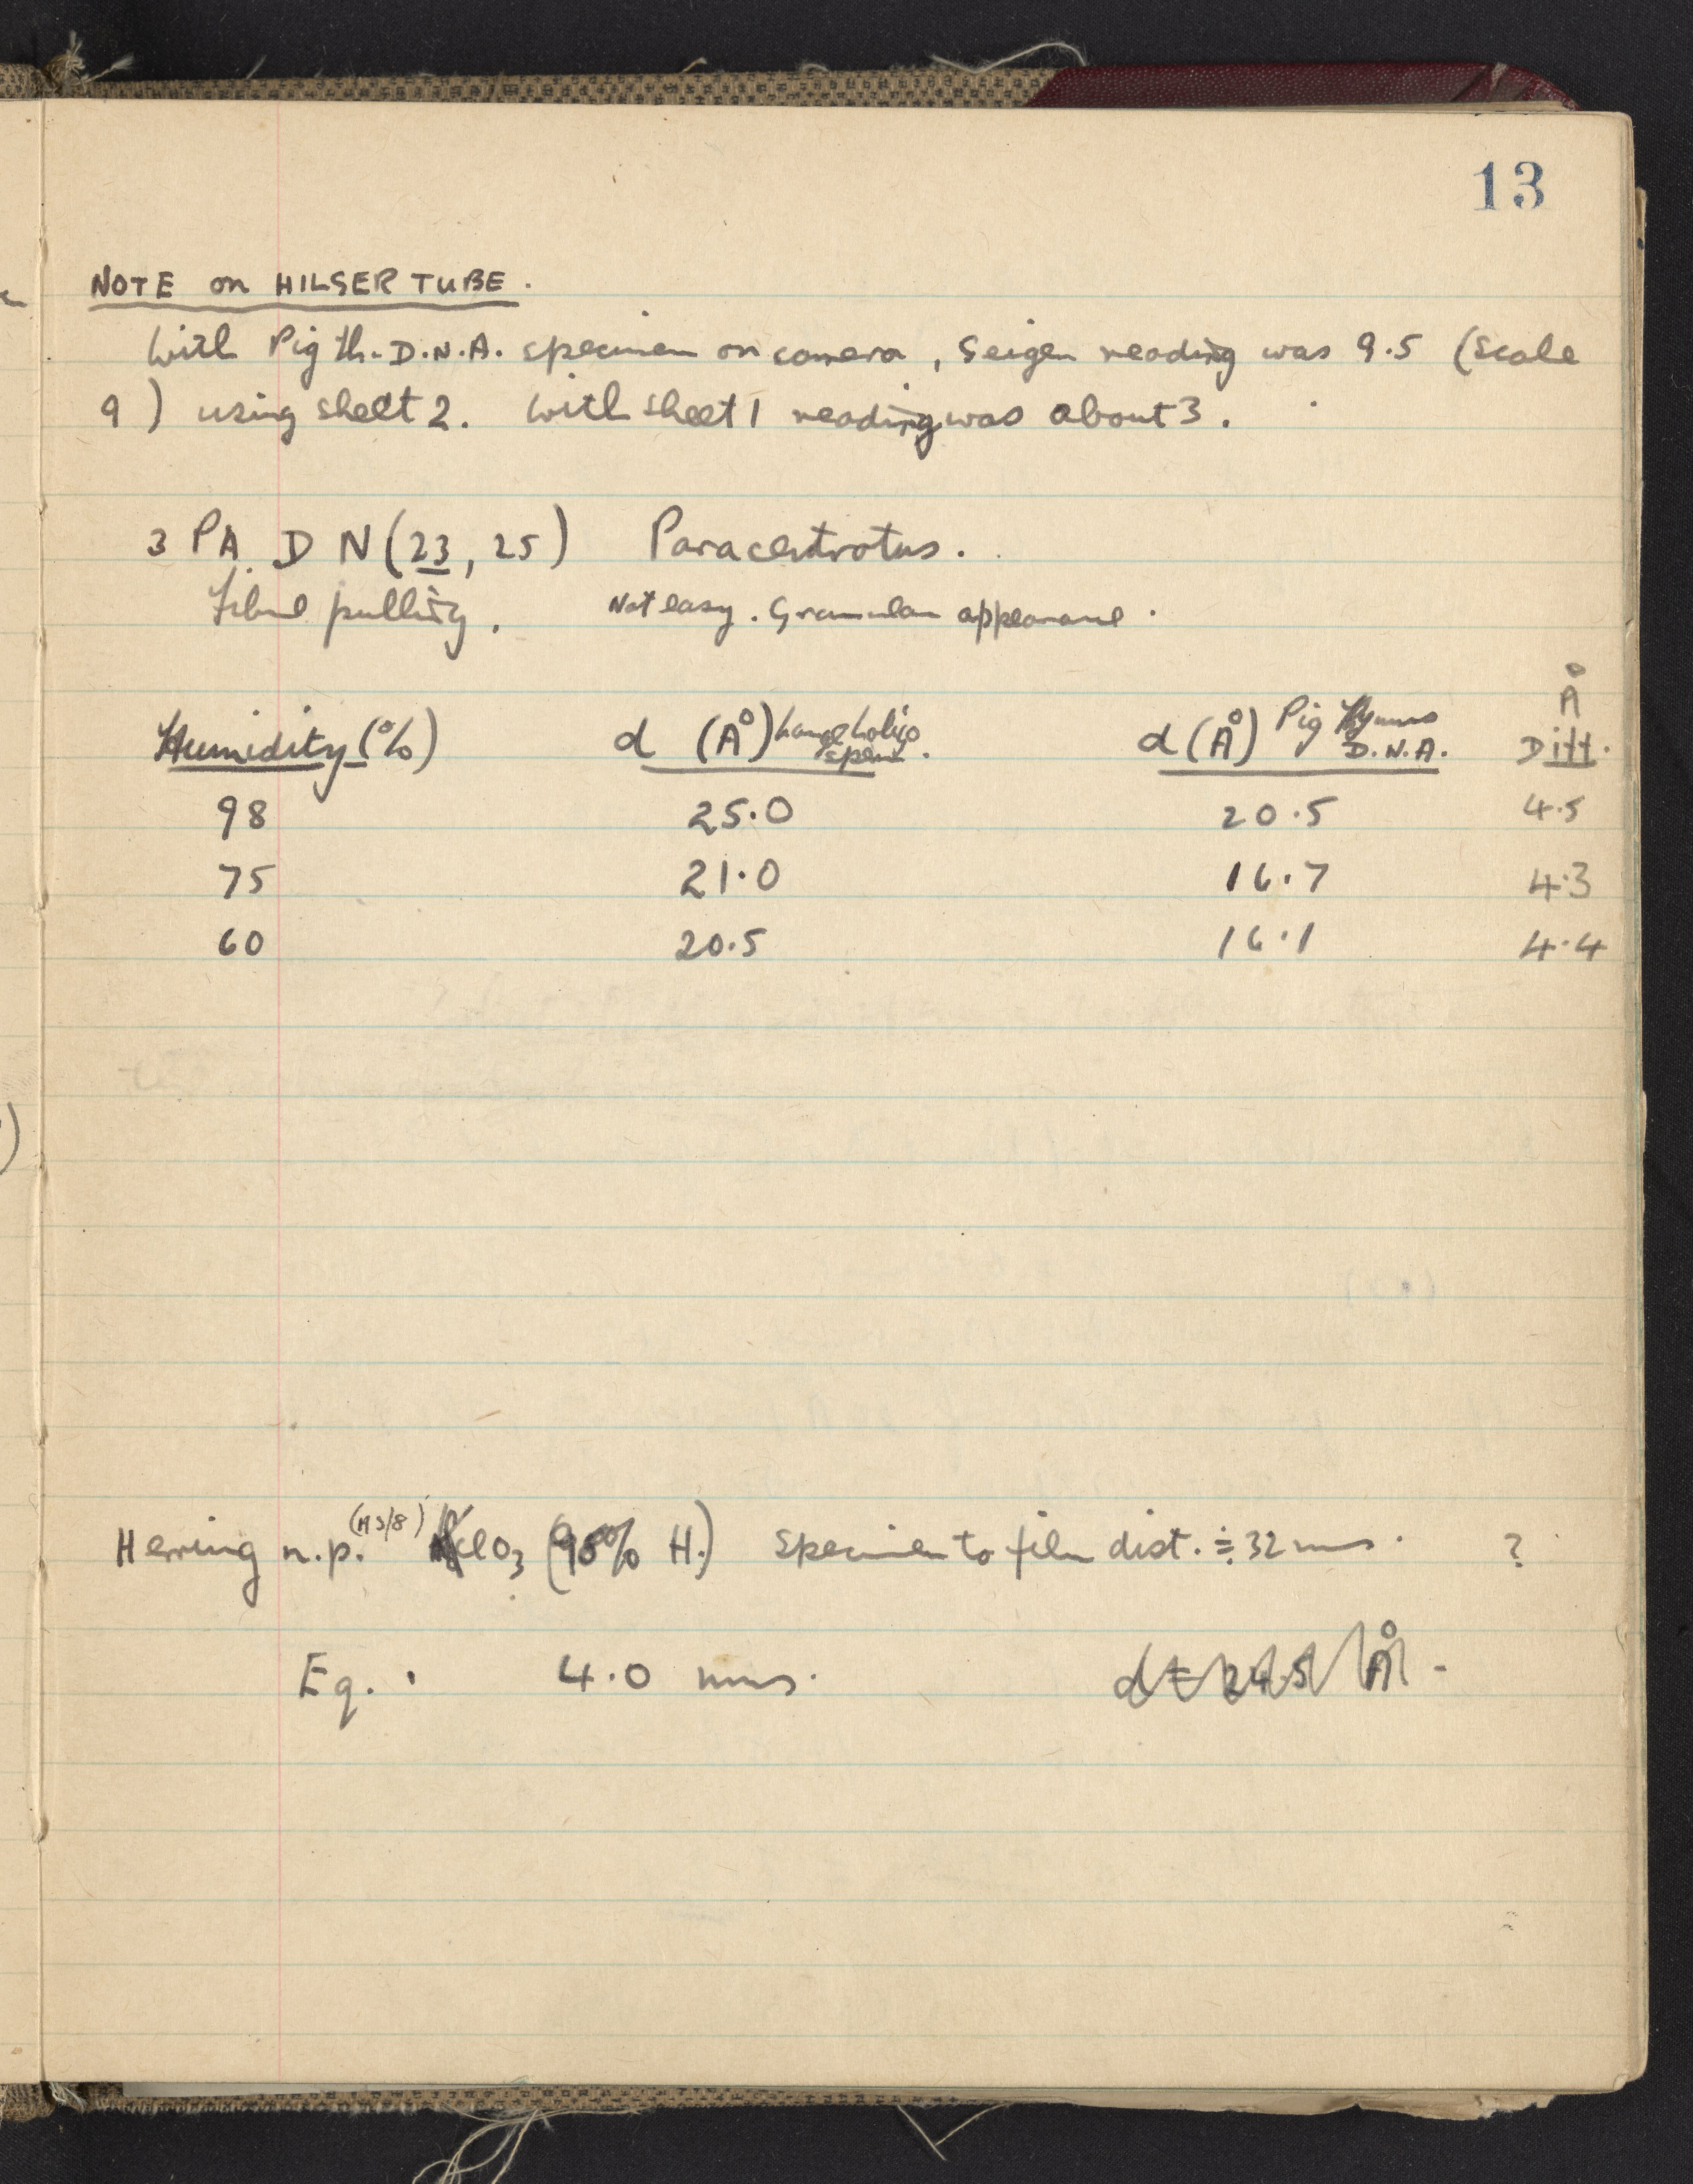 13
NOTE on HILGER TUBE.
With Pig th. D.N.A. specimen on camera, Geiger reading was 9.5 (Scale
9) using sheet 2. With sheet 1 reading was about 3.
3 PA. D N (23, 25) Paracentrotus.
Fibre pulling. Not easy. Granular appearance.
Humidity (%) d (Å) Langeholigo sperm. d (Å) Pig Thymus D.N.A. Å Diff.
98 25.0 20.5 4.5
75 21.0 16.7 4.3
60 20.5 16.1 4.4
Herring n.p. ClO3 (98% H.) Specimen to film dist. ≑ 32 mms. ?
Eq. 4.0 mms. d = 24.5 Å